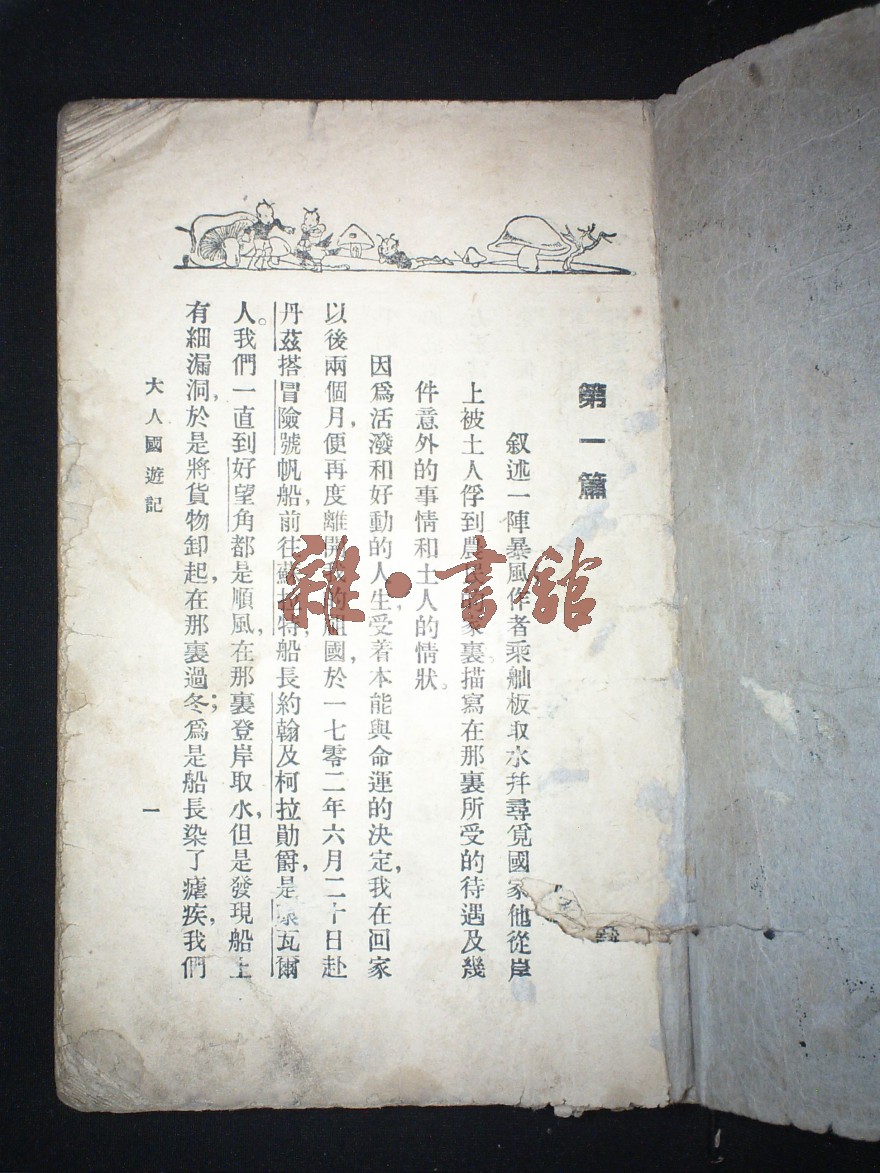 第一篇
叙述一陣暴風作者乘舢板取水幷尋覓國家他從岸
上被土人俘到農民的家裏。描寫在那裏所受的待遇及幾
件意外的事情和土人的情狀。
因爲活潑和好動的人生，受着本能與命運的決定，我在回家
以後兩個月，便再度離開我的祖國，於一七零二年六月二十日赴
丹茲搭冒險號帆船，前往蘇拉特，船長約翰及柯拉勛爵，是 瓦爾
人。我們一直到好望角都是順風，在那裏登岸取水，但是發現船上
有細漏洞，於是將貨物卸起，在那裏過冬；爲是船長染了瘧疾，我們
大人國遊記
一
雜·書館